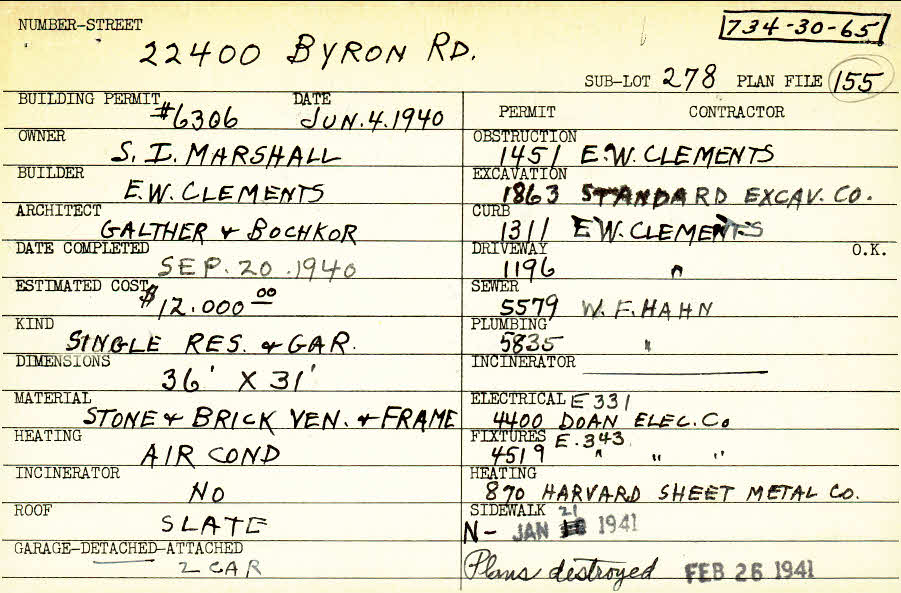 NUMBER-STREET
734-30-65
22400 BYRON RD.
SUB-LOT 278 PLAN FILE 155
BUILDING PERMIT #6306 DATE JUN.4.1940
OWNER S. I. MARSHALL
BUILDER E.W. CLEMENTS
ARCHITECT GALTHER & BOCHKOR
DATE COMPLETED SEP. 20 .1940
ESTIMATED COST $12.000 00
KIND SINGLE RES. & GAR.
DIMENSIONS 36' X 31'
MATERIAL STONE & BRICK VEN. & FRAME
HEATING AIR COND
INCINERATOR NO
ROOF SLATE
GARAGE-DETACHED-ATTACHED
2 CAR
PERMIT CONTRACTOR
OBSTRUCTION
1451 E.W. CLEMENTS
EXCAVATION
1863 STANDARD EXCAV. CO.
CURB
1311 E.W. CLEMENTS
DRIVEWAY O.K.
1196 "
SEWER
5579 W. F. HAHN
PLUMBING
5835 "
INCINERATOR
ELECTRICAL E 331
4400 DOAN ELEC. Co
FIXTURES E. 343
4519 " " "
HEATING
870 HARVARD SHEET METAL CO.
SIDEWALK 21
N- JAN 1941
Plans destroyed FEB 26 1941